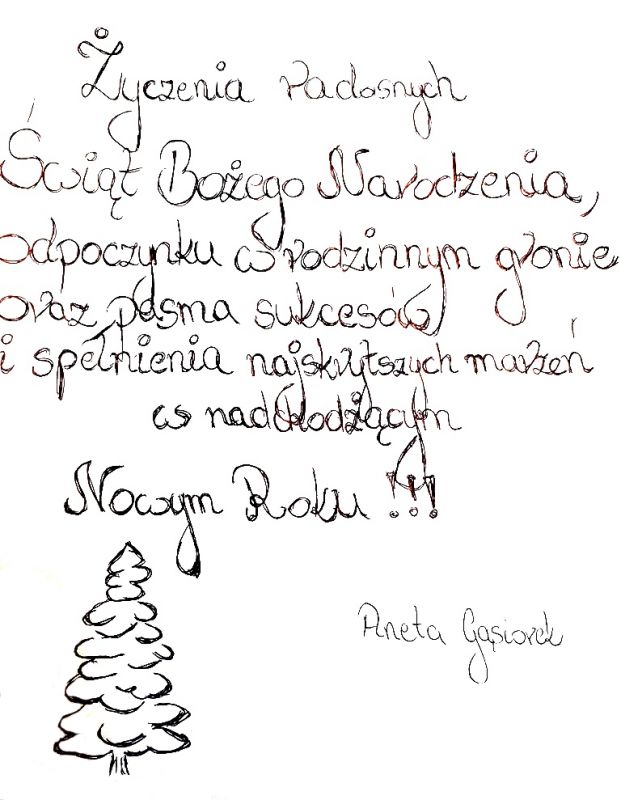 Życzenia radosnych
Świąt Bożego Narodzenia,
odpoczynku w rodzinnym gronie
oraz pasma sukcesów
i spełnienia najskrytszych marzeń
w nadchodzącym
Nowym Roku !!!
Aneta Gąsiorek